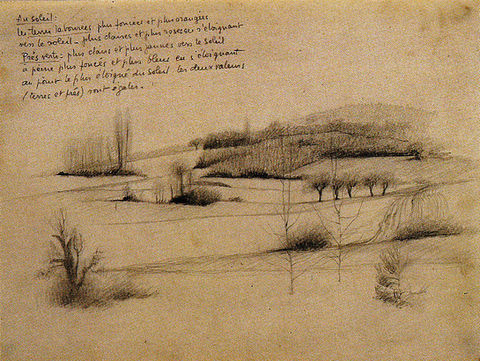 Au soleil:
les terres labourées plus foncées et plus orangées
vers le soleil - plus claires et plus roses s'éloignant
Prés verts: plus clairs et plus jaunes vers le soleil
à peine plus foncés et plus bleus en s'éloignant
au point le plus éloigné du soleil les deux valeurs
(terres et prés) sont égales.